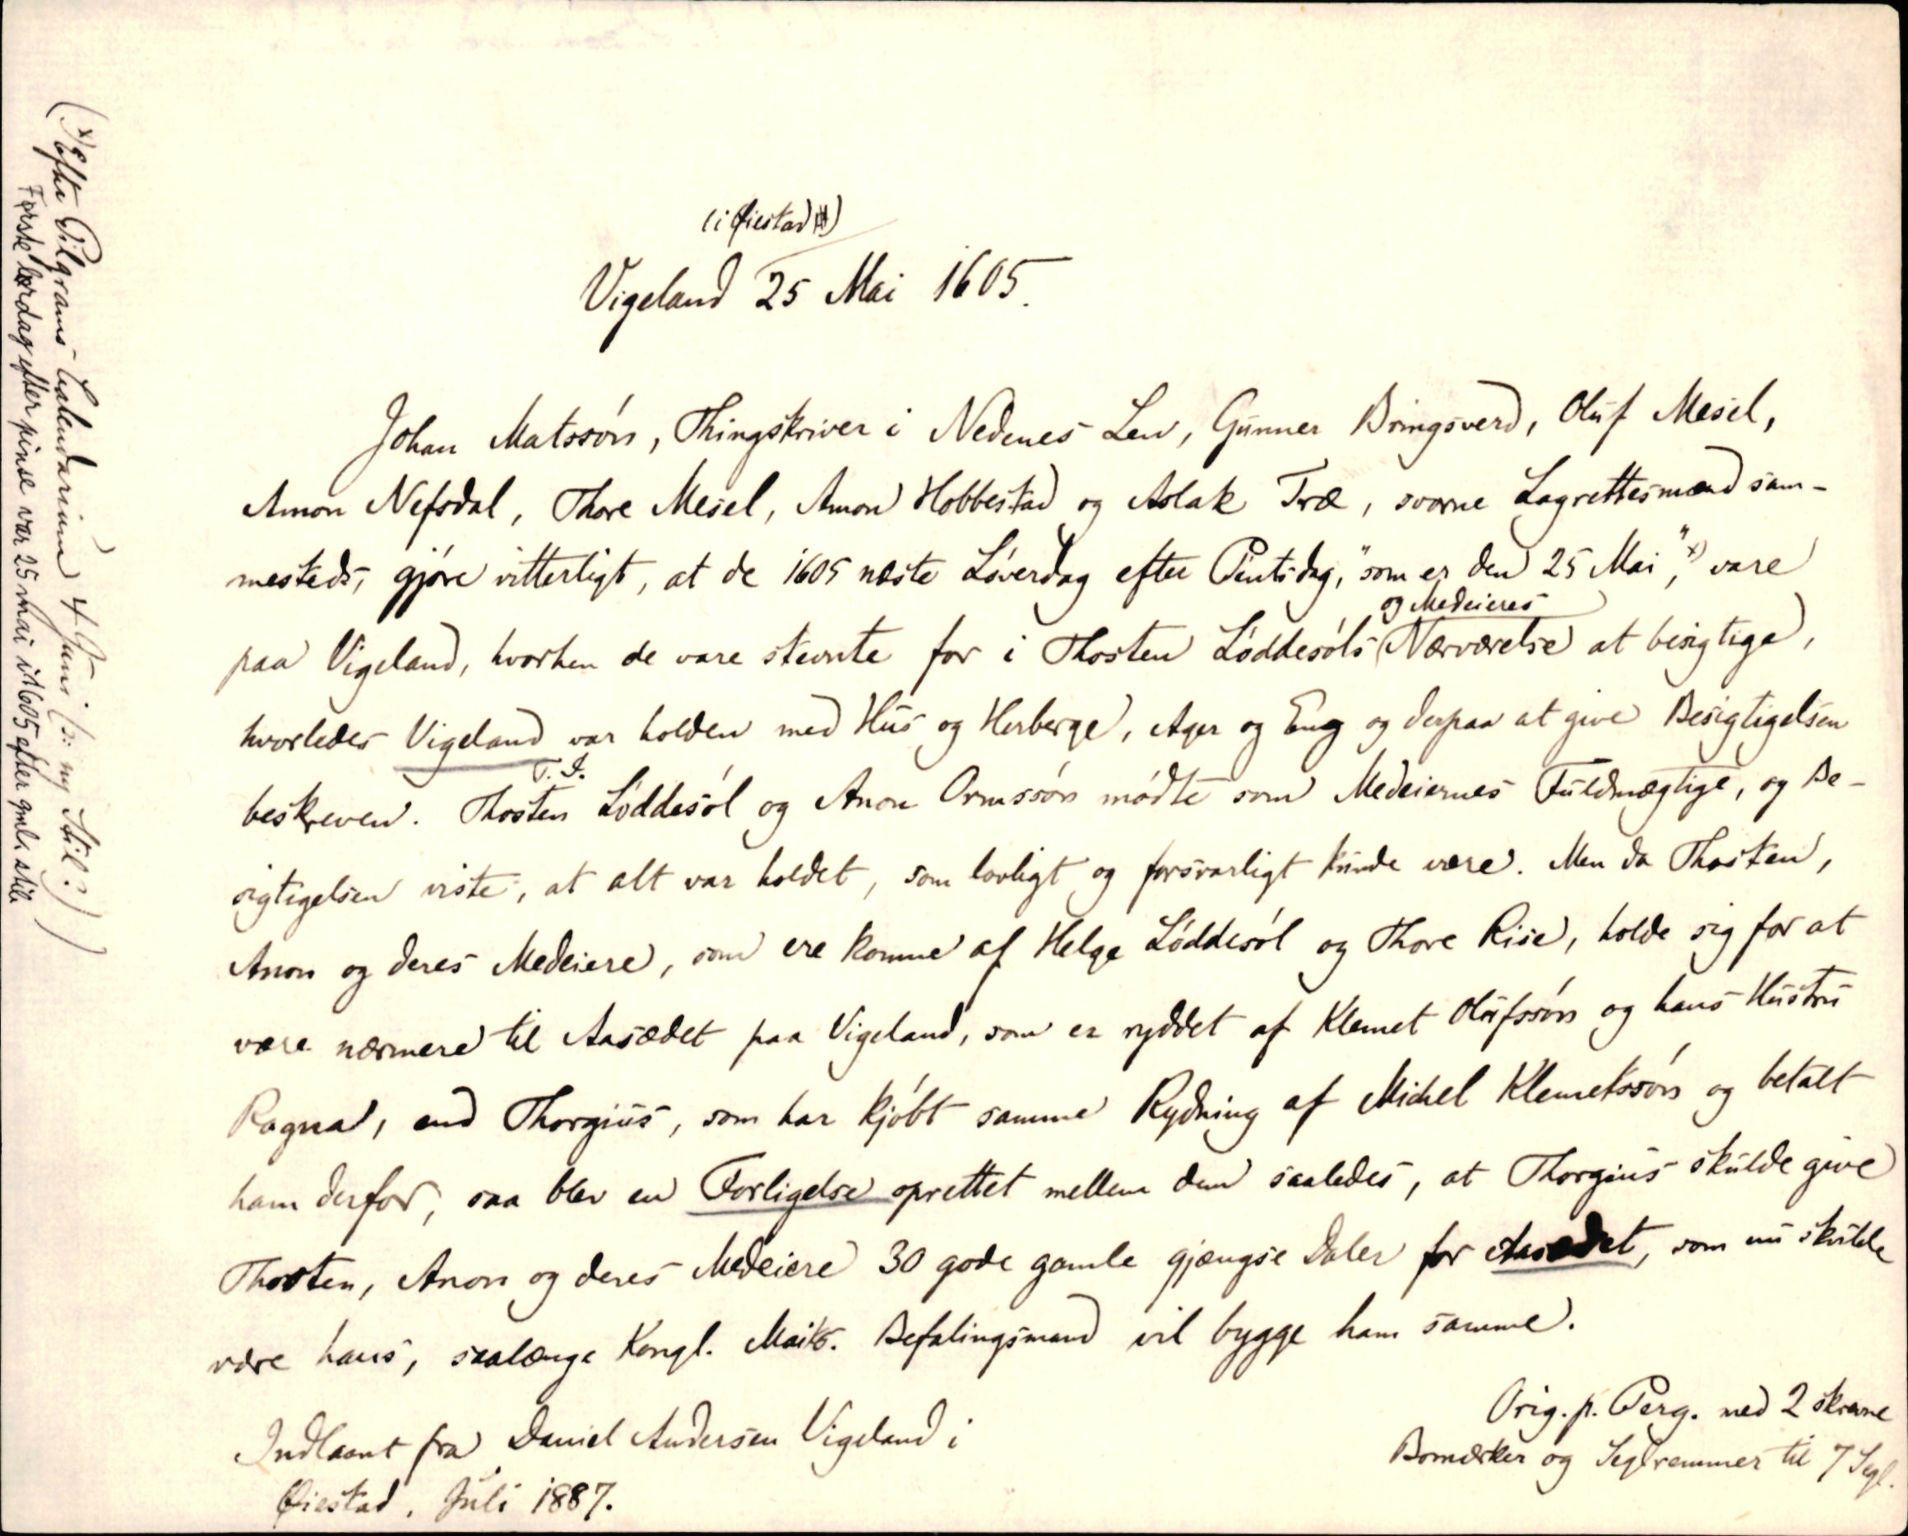 (i Øiestad)
Vigeland 25 Mai 1605.
Johan Matssøn, Thingskriver i Nedenes Len, Gunner Bringsverd, Oluf Mesel,
Amon Nefsdal, Thore Mesel, Amon Hobbestad og Aslak Træ, svorne Lagrettesmænd sam-
mesteds, gjøre vitterligt, at de 1605 næste Løverdag efter Pintsdag, "som er den 25 Mai", x) vare
og Medeieres
paa Vigeland, hvorhen de vare stevnte for i Thosten Løddesøls Nærværelse at besigtige,
hvorledes Vigeland var holden med Hus og Herberge, Ager og Eng og derpaa at give Besigtigelsen
T. I.
beskreven. Thosten Løddesøl og Anon Ormssøn mødte som Medeiernes Fuldmægtige, og Be-
sigtigelsen viste, at alt var holdet, som lovligt og forsvarligt kunde være. Men da Thosten,
Anon og deres Medeiere, som ere komne af Helge Løddesøl og Thore Rise, holde sig for at
være nærmere til Aasædet paa Vigeland, som er ryddet af Klemet Olufssøn og hans Hustru
Ragna, end Thorgius, som har kjøbt samme Rydning af Michel Klemetssøn og betalt
ham derfor, saa blev en Forligelse oprettet mellem dem saaledes, at Thorgius skulde give
Thosten, Anon og deres Medeiere 30 gode gamle gjængse Daler for Aasædet, som nu skulde
være hans, saalænge Kongl. Maits. Befalingsmand vil bygge ham samme.
Orig. p. Perg. med 2 skrevne
Bomærker og Seglremmer til 7 Segl.
Indlaant fra Daniel Andersen Vigeland i
Øiestad. Juli 1887.
(x) Efter Pilgrams Calendarium 4 Juni (ɔ: ny Stil?)
Første lørdag efter pinse var 25 mai i 1605 efter gml. stil